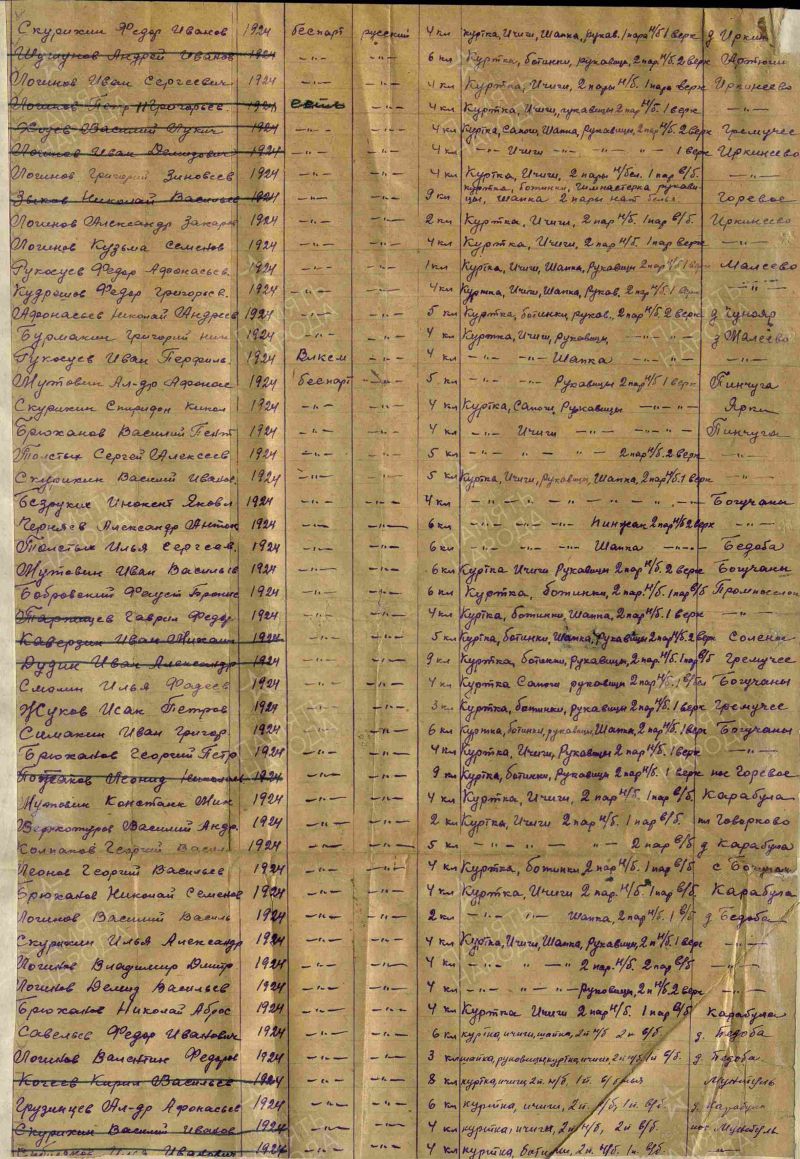 Скурихин Федор Иванов 1924 беспарт русский 4 кл куртка, Ичиги, Шапка, рукав. 1 пара н/б 1 верх д Иркин
Шугаунов Андрей Иванов 1924 -"- -"- 6 кл Куртка, ботинки, рукавицы, 2 пар н/б. 2 верх
Логинов Иван Сергеевич 1924 -"- -"- 4 кл Куртка, Ичиги, 2 пары н/б. 1 пара верх Иркинеево
Логинов Петр Григорьев. 1924 -"- 4 кл Куртка, Ичиги, рукавицы 2 пар н/б. 1 верх -"-
Василий Лукич 1924 -"- -"- 4 кл Куртка, Сапоги, Шапка, Рукавицы, 2 пар н/б. 2 верх Гремучее
Логинов Иван Демидович 1924 -"- -"- 4 кл -"- Ичиги -"- -"- -"- 1 верх Иркинеево
Логинов Григорий Зиновеев 1924 -"- -"- 4 кл Куртка, Ичиги, 2 пары н/бел. 1 пар в/б.
Зыков Николай Васильев 1924 -"- -"- 9 кл куртка, ботинки, гимнастерка, рукавицы, шапка 2 пары нат белья. Горевое
Логинов Александр Захаров 1924 -"- -"- 2 кл Куртка, Ичиги, 2 пар н/б. 1 пар в/б Иркинеево
Логинов Кузьма Семенов 1924 -"- -"- 4 кл Куртка, Ичиги, 2 пар н/б. 1 пар верх -"-
Рукосуев Федор Афонасьев. 1924 -"- -"- 1 кл Куртка, Ичиги, Шапка, Рукавицы 2 пар н/б 1 верх Малеево
Кудряшов Федор Григорьев. 1924 -"- -"- 4 кл Куртка, Ичиги, Шапка, Рукав. 2 пар н/б. 1 верх -"-
Афонасьев Николай Андреев 1924 -"- -"- 5 кл Куртка, ботинки, руков., 2 пар н/б. 2 верх д Чунояр
Бурмакин Григорий Ник 1924 -"- -"- 4 кл Куртка, Ичиги, Рукавицы -"- -"- д Малеево
Рукосуев Иван Перфиль. 1924 Влксм -"- 4 кл -"- -"- -"- Шапка -"- -"-
Жутовин Ал-др Афонас 1924 беспарт -"- 5 кл -"- -"- Рукавицы 2 пар н/б 1 верх Пинчуга
Скурихин Спиридон 1924 -"- -"- 4 кл Куртка, Сапоги, Рукавицы -"- -"- Ярки
Брюханов Василий Пект 1924 -"- -"- 4 кл -"- Ичиги -"- -"- -"- Пинчуга
Толстых Сергей Алексеев 1924 -"- -"- 5 кл -"- -"- -"- 2 пар н/б. 2 верх -"-
Скурихин Василий Иванов. 1924 -"- -"- 5 кл Куртка, Ичиги, Рукавицы, Шапка, 2 пар н/б. 1 верх -"-
Безруких Инокент Яковл 1924 -"- -"- 4 кл -"- -"- -"- -"- -"- Богучаны
Черняев Александр Антон 1924 -"- -"- 6 кл -"- -"- -"- Пинжак 2 пар н/б 2 верх -"-
Толстых Илья Сергеев. 1924 -"- -"- 6 кл -"- -"- -"- Шапка -"- -"- Бедоба
Жутовин Иван Васильев 1924 -"- -"- 6 кл Куртка Ичиги Рукавицы 2 пар н/б. 2 верх Богучаны
Бобровский Фауст 1924 -"- -"- 6 кл Куртка, ботинки, 2 пар. н/б. 1 пар в/б
Гаврил Федор 1924 -"- -"- 4 кл Куртка, ботинки, Шапка, 2 пар н/б. 1 верх -"-
Каверзин Иван Михаил 1924 -"- -"- 5 кл Куртка, ботинки, Шапка, Рукавицы 2 пар н/б. 2 верх
Дудин Иван Александр 1924 -"- -"- 9 кл Куртка, ботинки, Рукавицы, 2 пар. н/б. 1 пар в/б Гремучее
Смолин Илья Фадеев 1924 -"- -"- 4 кл Куртка Сапоги рукавицы 2 пар н/б. 1 в/бел Богучаны
Жуков Исак Петров 1924 -"- -"- 3 кл Куртка, ботинки, рукавицы 2 пар н/б. 1 верх Гремучее
Симакин Иван Григор. 1924 -"- -"- 6 кл Куртка, ботинки, рукавицы, Шапка, 2 пар н/б. 1 верх Богучаны
Брюханов Георгий Петр 1924 -"- -"- 4 кл Куртка, Ичиги, Рукавицы 2 пар н/б. 1 верх -"-
Леонид Николаев 1924 -"- -"- 9 кл Куртка, ботинки, Рукавицы 2 пар н/б. 1 верх пос Горевое
Жутовин Констант Мих 1924 -"- -"- 4 кл Куртка, Ичиги, 2 пар н/б. 1 пар в/б Карабула
Верхотуров Василий Андр. 1924 -"- -"- 2 кл Куртка, Ичиги 2 пар н/б. 1 пар в/б Говорково
Колпаков Георгий Васил 1924 -"- -"- 5 кл -"- -"- -"- 2 пар в/б д Карабула
Леонов Георгий Васильев 1924 -"- -"- 4 кл Куртка, ботинки 2 пар н/б. 1 пар в/б с Богучаны
Брюханов Николай Семенов 1924 -"- -"- 4 кл Куртка, Ичиги 2 пар. н/б. 1 пар в/б. Карабула
Логинов Василий Василь 1924 -"- -"- 2 кл -"- -"- Шапка, 2 пар н/б. 1 в/б д Бедоба
Скурихин Илья Александр 1924 -"- -"- 4 кл Куртка, Ичиги, Шапка, Рукавицы, 2 п н/б. 1 верх -"-
Логинов Владимир Дмитр 1924 -"- -"- 4 кл -"- -"- -"- 2 пар. н/б. 2 пар в/б -"-
Логинов Демид Васильев 1924 -"- -"- 4 кл -"- -"- Руковицы, 2 п н/б. 2 верх -"-
Брюханов Николай Аброс 1924 -"- -"- 4 кл Куртка Ичиги 2 пар н/б. 1 пар в/б Карабула
Савельев Федор Иванович 1924 -"- -"- 6 кл куртка, ичиги, шапка, 2 п н/б. 2 п в/б. д. Бедоба
Логинов Валентин Федоров 1924 -"- -"- 3 кл шапка, руковицы, куртка, ичиги, 2 п н/б, 1 п. в/б. д. Бедоба
Кочеев Кирил Васильев 1924 -"- -"- 8 кл куртка, ичиги, 2 п. н/б, 1 п. в/белья
Грузинцев Ал-др Афонасьев 1924 -"- -"- 6 кл куртка, ичиги, 2 п. н/б, 1 п. в/б. д. Карабула
Скурихин Василий Иванов 1924 -"- -"- 4 кл куртка, ичиги, 2 п н/б, 2 п в/б пос.
Иванович 1924 -"- -"- 4 кл куртка, ботинки, 2 п. н/б. 1 п. в/б. -"-